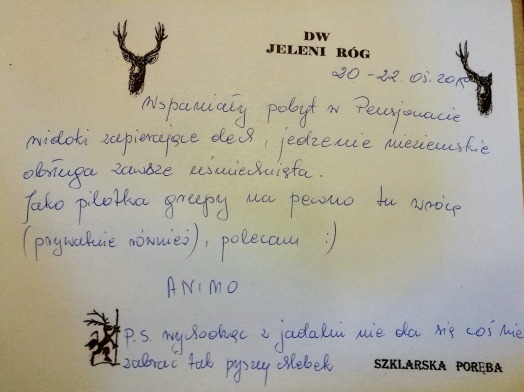 DW
JELENI RÓG
20-22.05.
Wspaniały pobyt w Pensjonacie
widoki zapierające dech, jedzenie nieziemskie
obsługa zawsze uśmiechnięta.
Jako pilotka grupy na pewno tu wrócę
(prywatnie również), polecam :)
ANIMO
P.S. wychodząc z jadalni nie da się coś nie
zabrać tak pyszny chlebek
SZKLARSKA PORĘBA